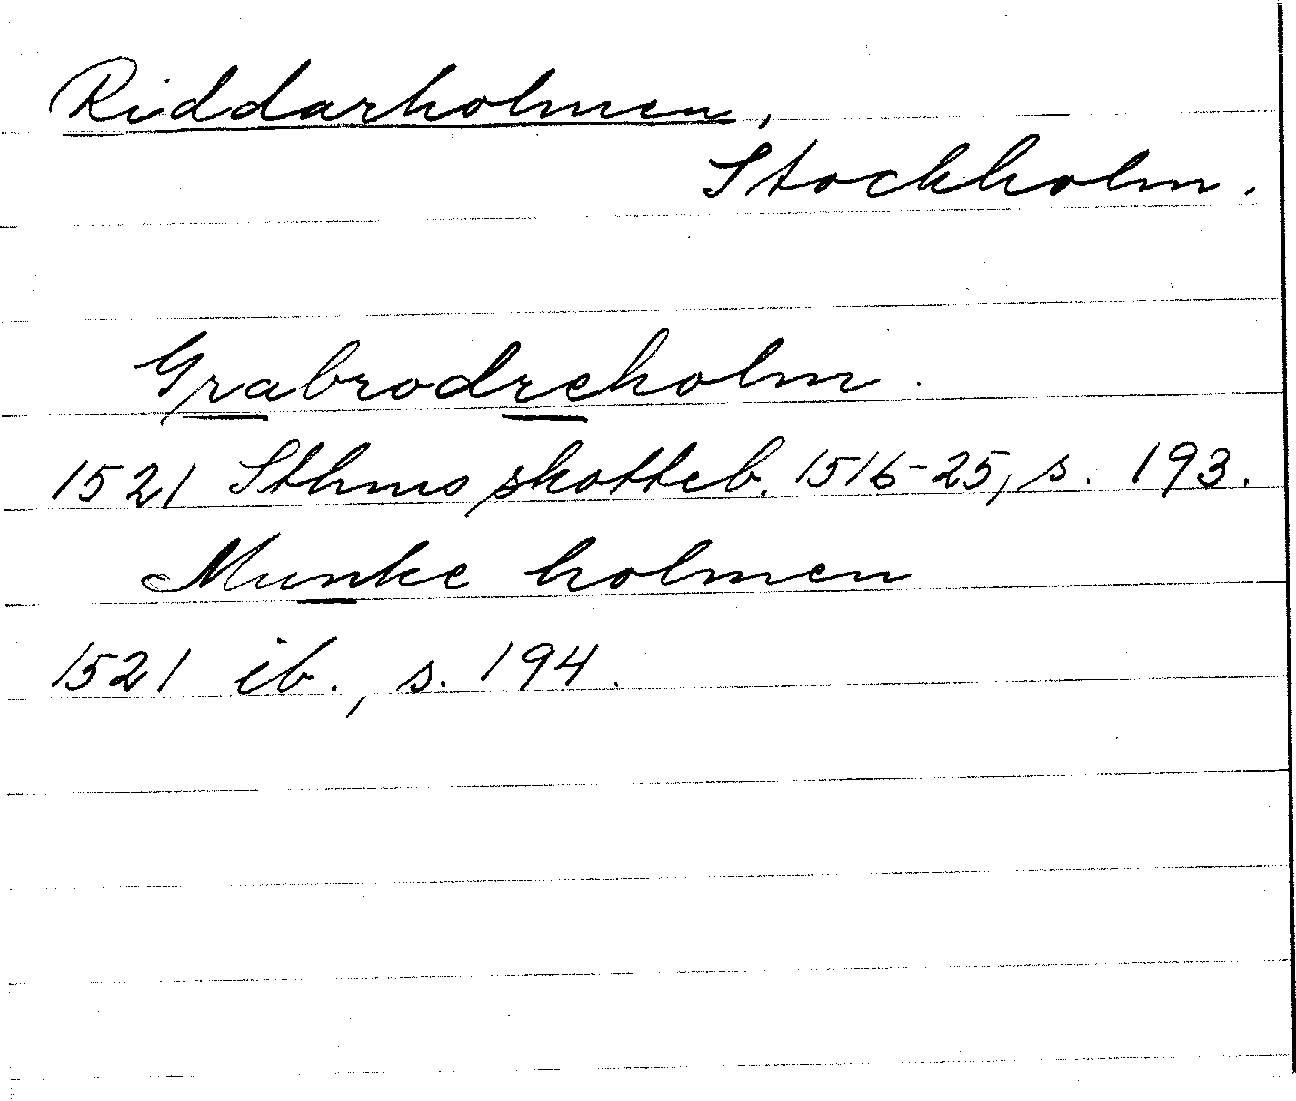 Riddarholmen,
Stockholm.
Grabrodreholm.
1521 Sthms skotteb. 1516-25, s. 193.
Munke holmen
1521 ib., s. 194.